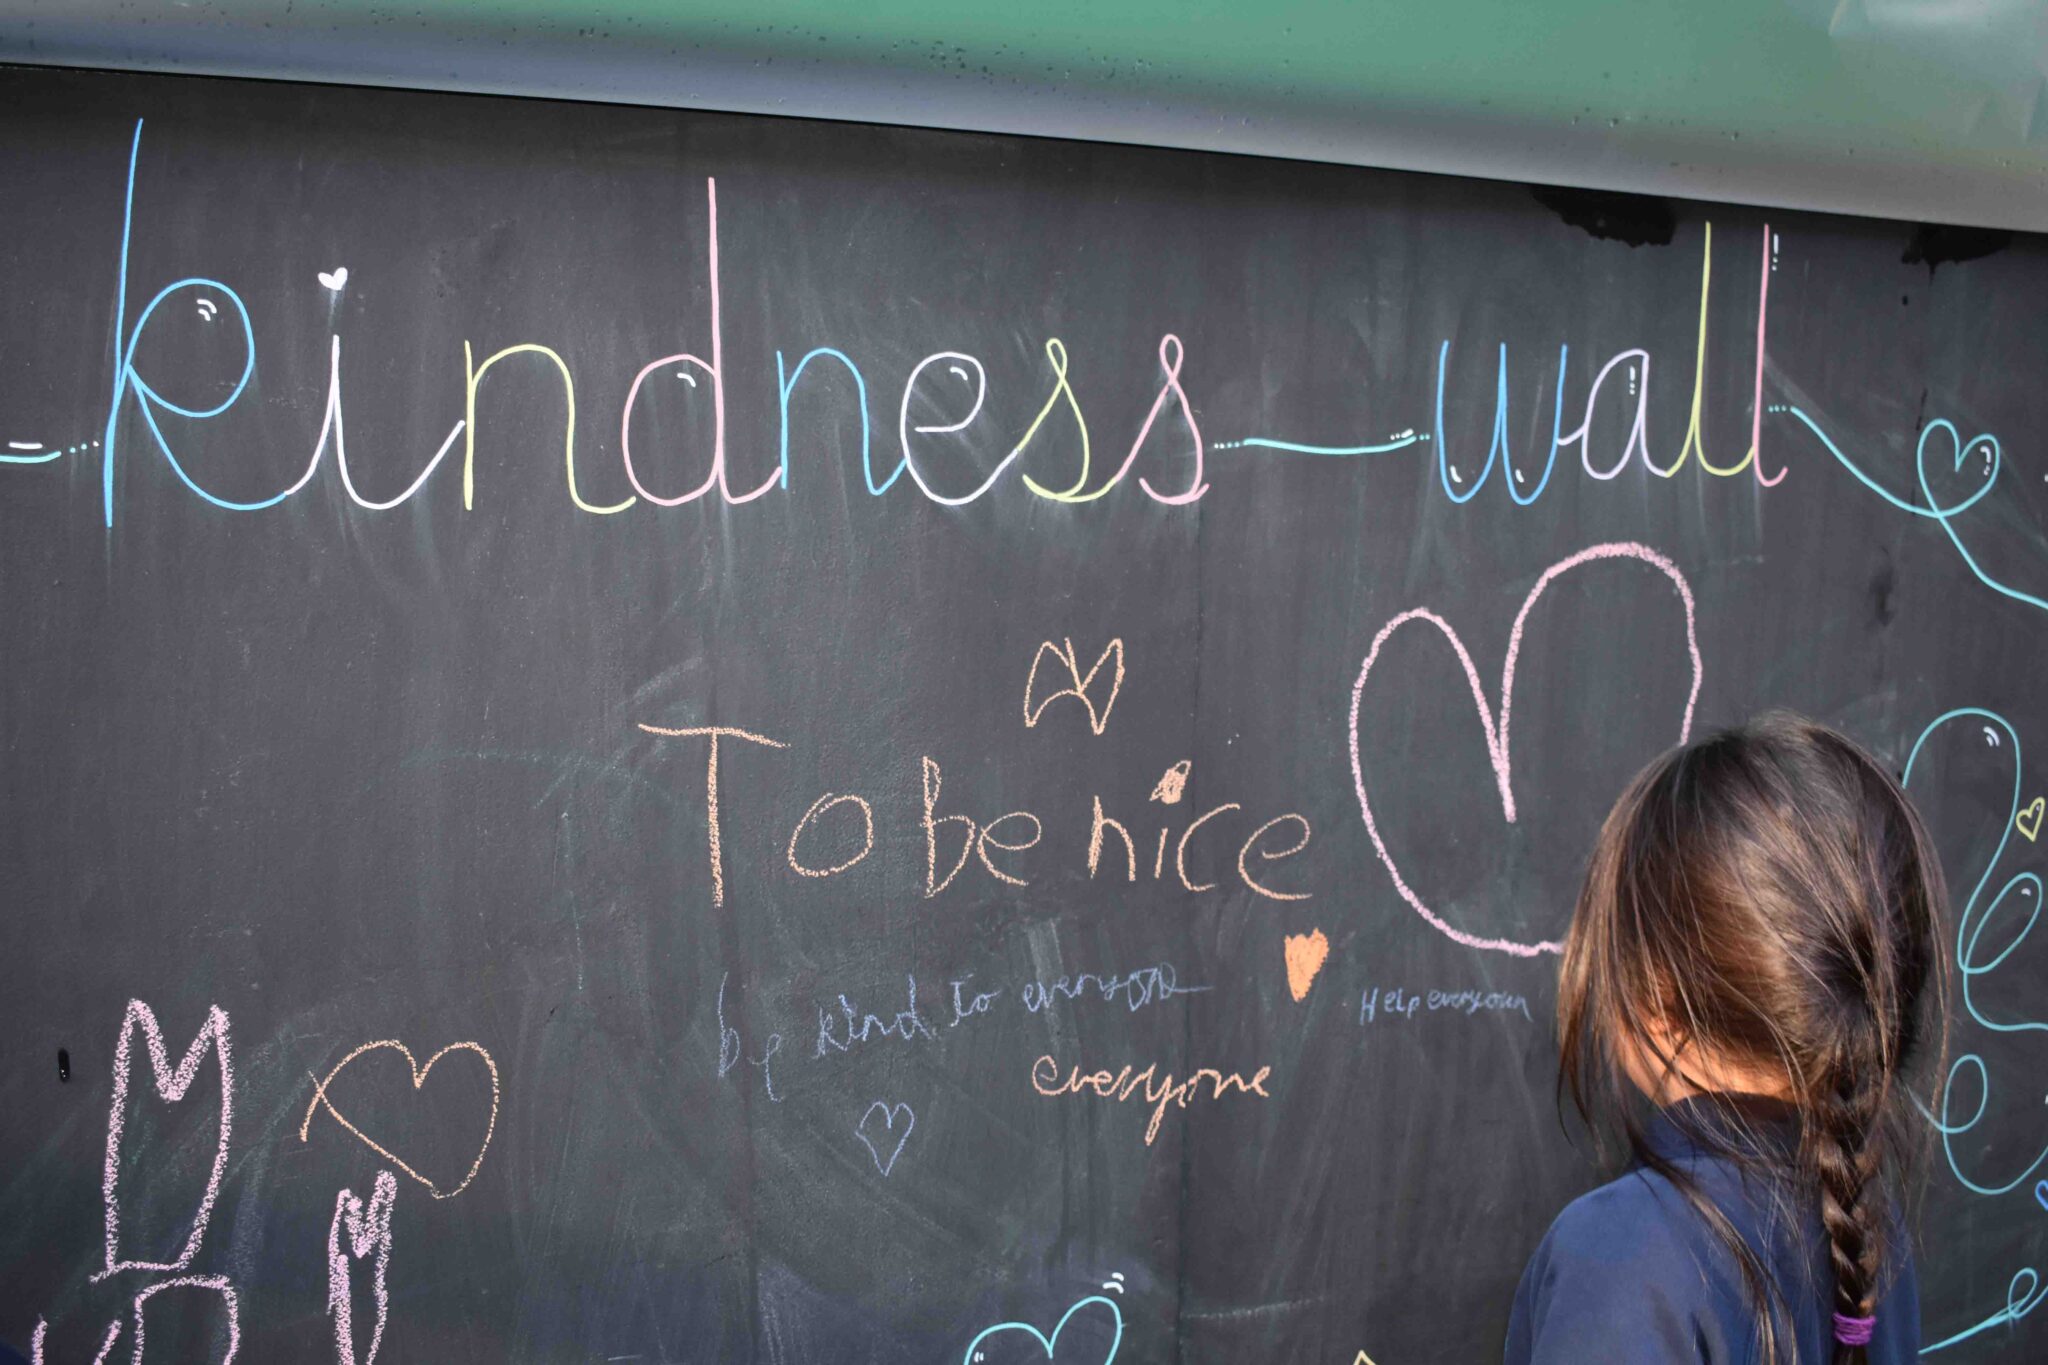 kindness wall
To be nice
be kind to everyone
Help everyown
everyone